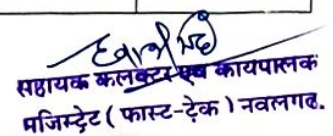 सहायक कलक्टर एवं कार्यपालक
मजिस्ट्रेट ( फास्ट-ट्रेक ) नवलगढ़.